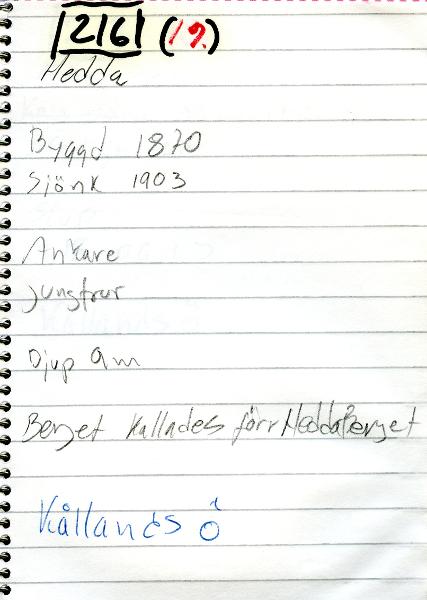 216 (1?)
Hedda
Byggd 1870
Sjönk 1903
Ankare
Jungfrur
Djup 9m
Berget kallades förr HeddaBerget
Kållands ö